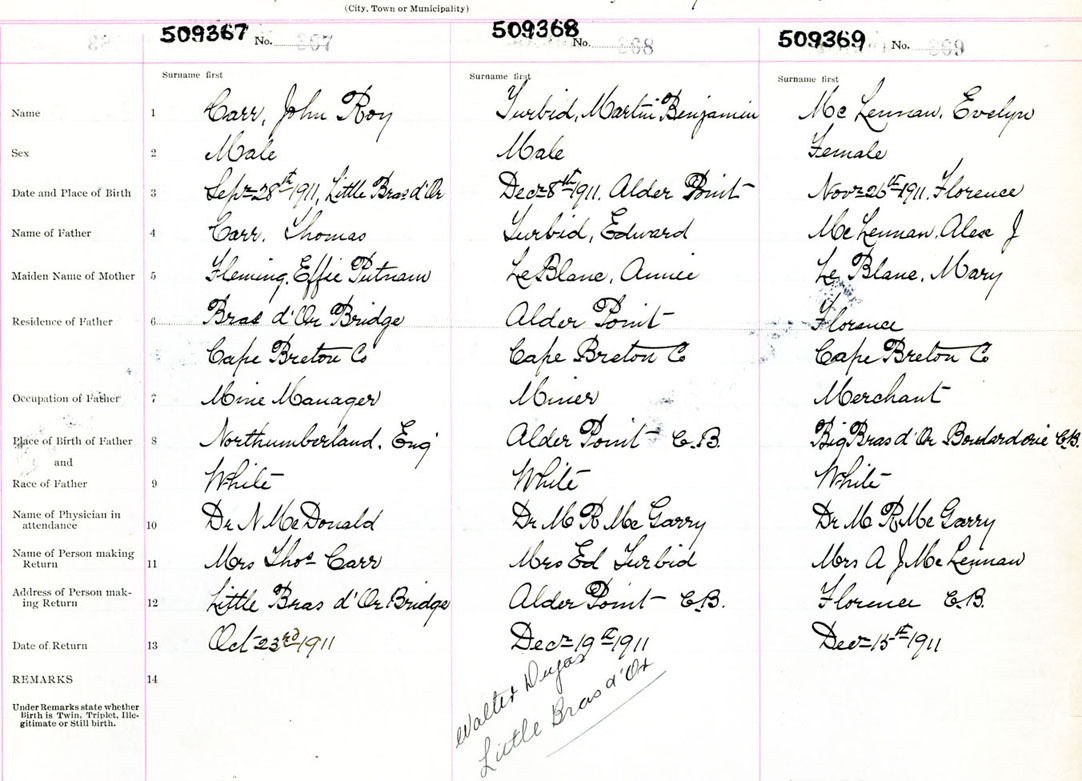 (City, Town or Municipality)
509367 No. 367 509368 No. 368 509369 No. 369
Surname first Surname first Surname first
Name 1 Carr, John Roy Turbid, Martin Benjamin Mc Lennan, Evelyn
Sex 2 Male Male Female
Date and Place of Birth 3 Sept 28th 1911, Little Bras d'Or Decr 8th 1911. Alder Point Novr 26th 1911. Florence
Name of Father 4 Carr. Thomas Turbid, Edward Mc Lennan. Alex J
Maiden Name of Mother 5 Fleming. Effie Putnam Le Blanc, Annie Le Blanc, Mary
Residence of Father 6 Bras d'Or Bridge Alder Point Florence
Cape Breton Co Cape Breton Co Cape Breton Co
Occupation of Father 7 Mine Manager Miner Merchant
Place of Birth of Father 8 Northumberland. Eng Alder Point C.B. Big Bras d'Or C.B.
and
Race of Father 9 White White White
Name of Physician in
attendance 10 Dr N McDonald Dr M R Mc Garry Dr M R Mc Garry
Name of Person making
Return 11 Mrs Thos Carr Mrs Ed Turbid Mrs A J Mc Lennan
Address of Person mak-
ing Return 12 Little Bras d'Or Bridge Alder Point C.B. Florence C.B.
Date of Return 13 Oct 23rd 1911 Decr 19th 1911 Decr 15th 1911
REMARKS 14
Under Remarks state whether
Birth is Twin, Triplet, Ille-
gitimate or Still birth.
Walter Dugas
Little Bras d'Or